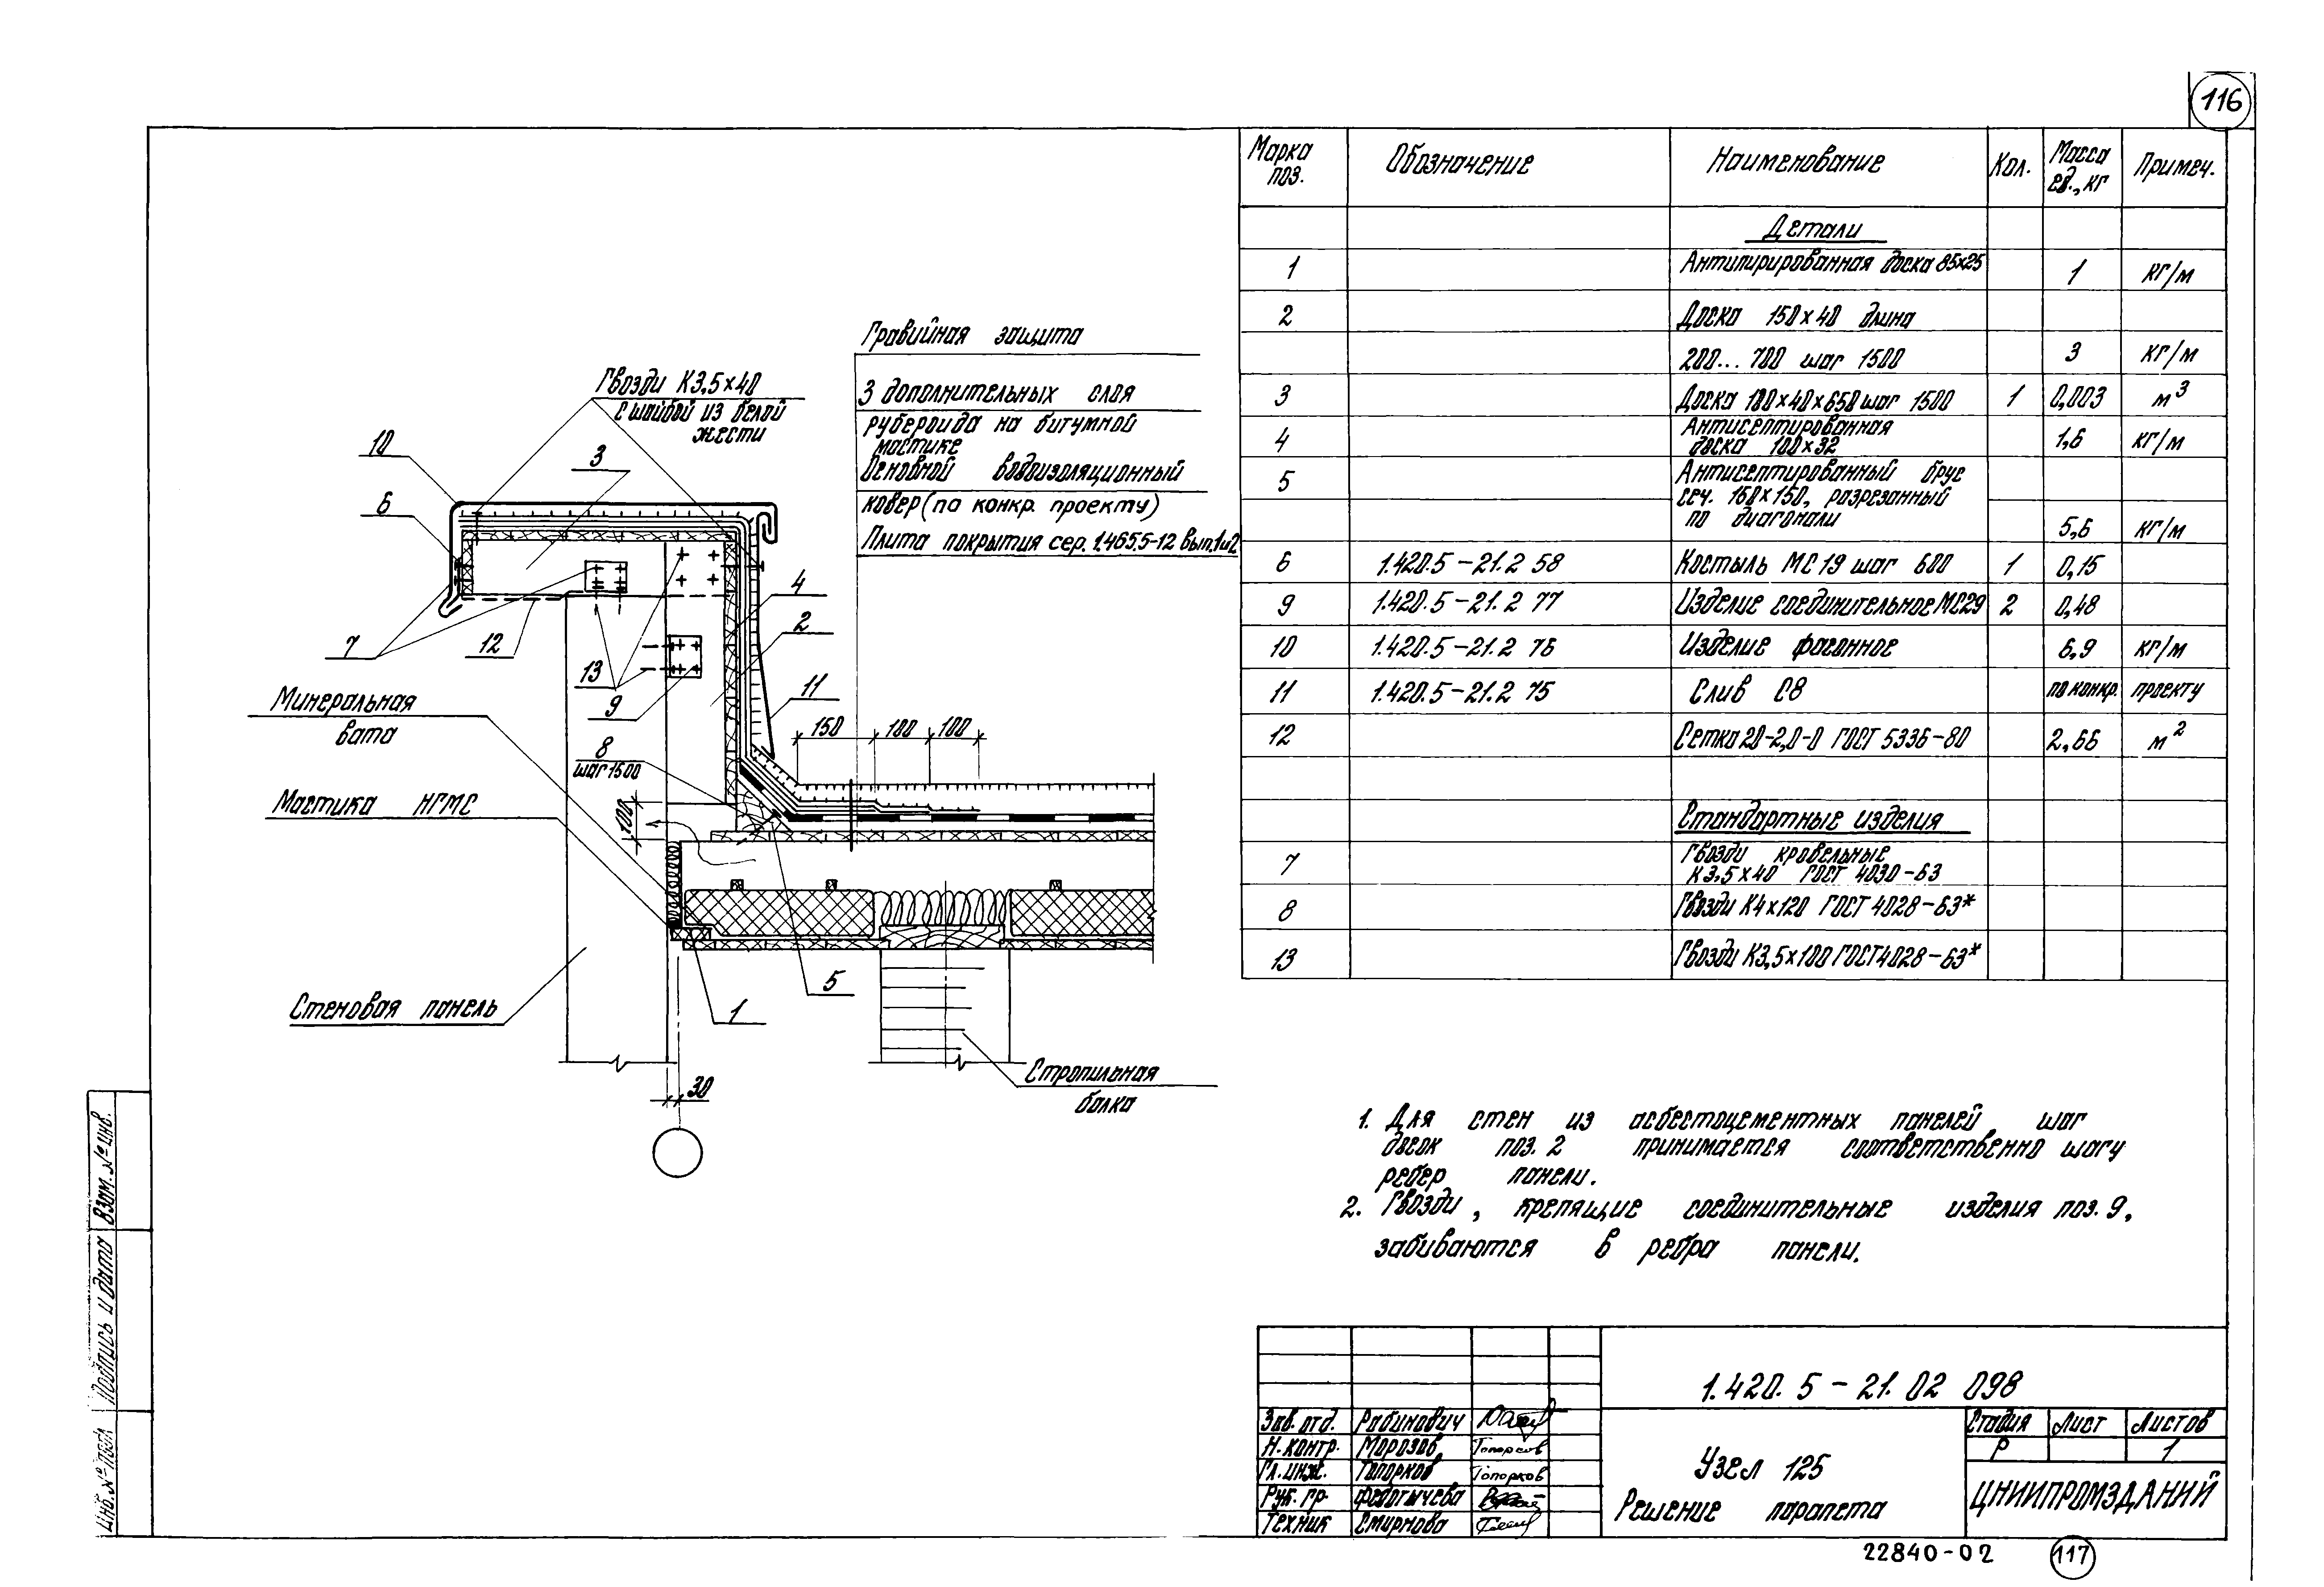 116
Марка поз.
Обозначение
Наименование
Кол.
Масса ед., кг
Примеч.
Детали
1 Антипирированная доска 85×25 1 кг/м
2 Доска 150×40 длина
200... 700 шаг 1500 3 кг/м
3 Доска 180×40×650 шаг 1500 1 0,003 м³
4 Антисептированная
доска 100×32 1,6 кг/м
5 Антисептированный брус
сеч. 150×150, разрезанный
по диагонали 5,6 кг/м
6 1.420.5-21.2 58 Костыль МС19 шаг 600 1 0,15
9 1.420.5-21.2 77 Изделие соединительное МС29 2 0,48
10 1.420.5-21.2 76 Изделие фасонное 6,9 кг/м
11 1.420.5-21.2 75 Слив С8 по конкр. проекту
12 Сетка 20-2,0-0 ГОСТ 5336-80 2,66 м²
Стандартные изделия
7 Гвозди кровельные
К3,5×40 ГОСТ 4030-63
8 Гвозди К4×120 ГОСТ 4028-63*
13 Гвозди К3,5×100 ГОСТ 4028-63*
Гравийная защита
3 дополнительных слоя
рубероида на битумной
мастике
Основной водоизоляционный
ковер (по конкр. проекту)
Плита покрытия сер. 1.465.5-12 вып. 1и2
Гвозди К3,5×40
с шайбой из белой
жести
10
3
6
4
2
7
12
13
9
11
150
100
100
8
шаг 1500
100
Минеральная
вата
Мастика НГМС
5
1
Стеновая панель
30
Стропильная
балка
1. Для стен из асбестоцементных панелей шаг
досок поз. 2 принимается соответственно шагу
ребер панели.
2. Гвозди, крепящие соединительные изделия поз. 9,
забиваются в ребра панели.
1.420.5-21.02 098
Зав. отд. Рабинович
Н. контр. Морозов
Гл. инж. Топорков Топорков
Рук. гр.
Техник Смирнова
Узел 125
Решение парапета
Стадия Лист Листов
Р 1
ЦНИИПРОМЗДАНИЙ
22840-02
117
Взам. № инв.
Подпись и дата
Инв. № подл.